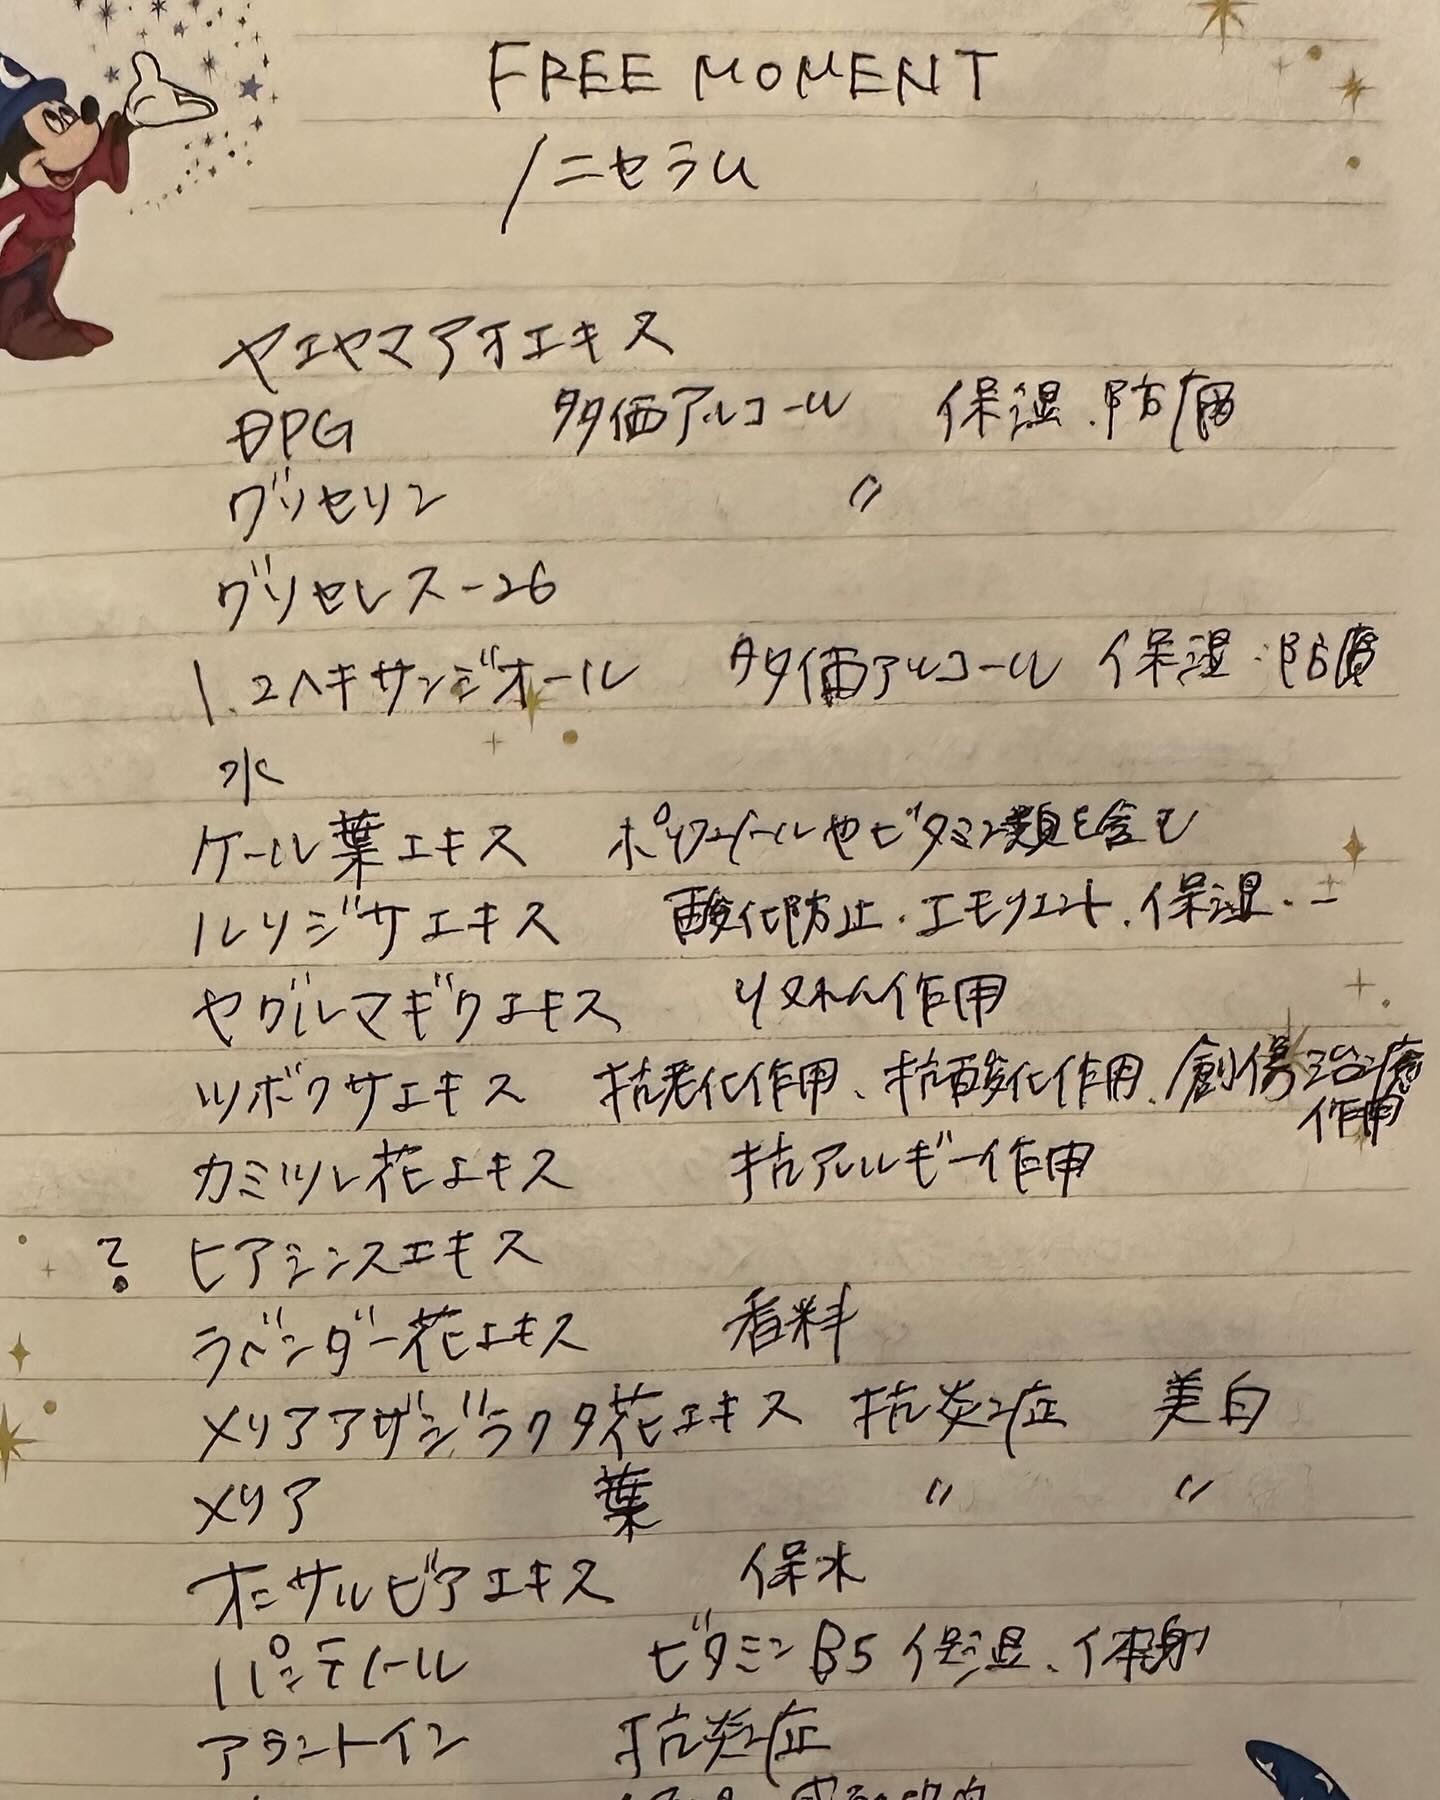 FREE MOMENT
/ニセラム
ヤエヤマアオエキス
DPG 多価アルコール 保湿.防腐
グリセリン 〃
グリセレス-26
1.2ヘキサンジオール 多価アルコール 保湿.防腐
水
ケール葉エキス ポリフェノールやビタミン類を含む
ルリジサエキス 酸化防止.エモリエント.保湿.
ヤグルマギクエキス 作用
ツボクサエキス 抗老化作用、抗酸化作用、創傷治癒
作用
カミツレ花エキス 抗アレルギー作用
? ヒアシンスエキス
ラベンダー花エキス 香料
メリアアザジラクタ花エキス 抗炎症 美白
メリア 葉 〃 〃
オニサルビアエキス 保水
パンテノール ビタミンB5 保湿、
アラントイン 抗炎症